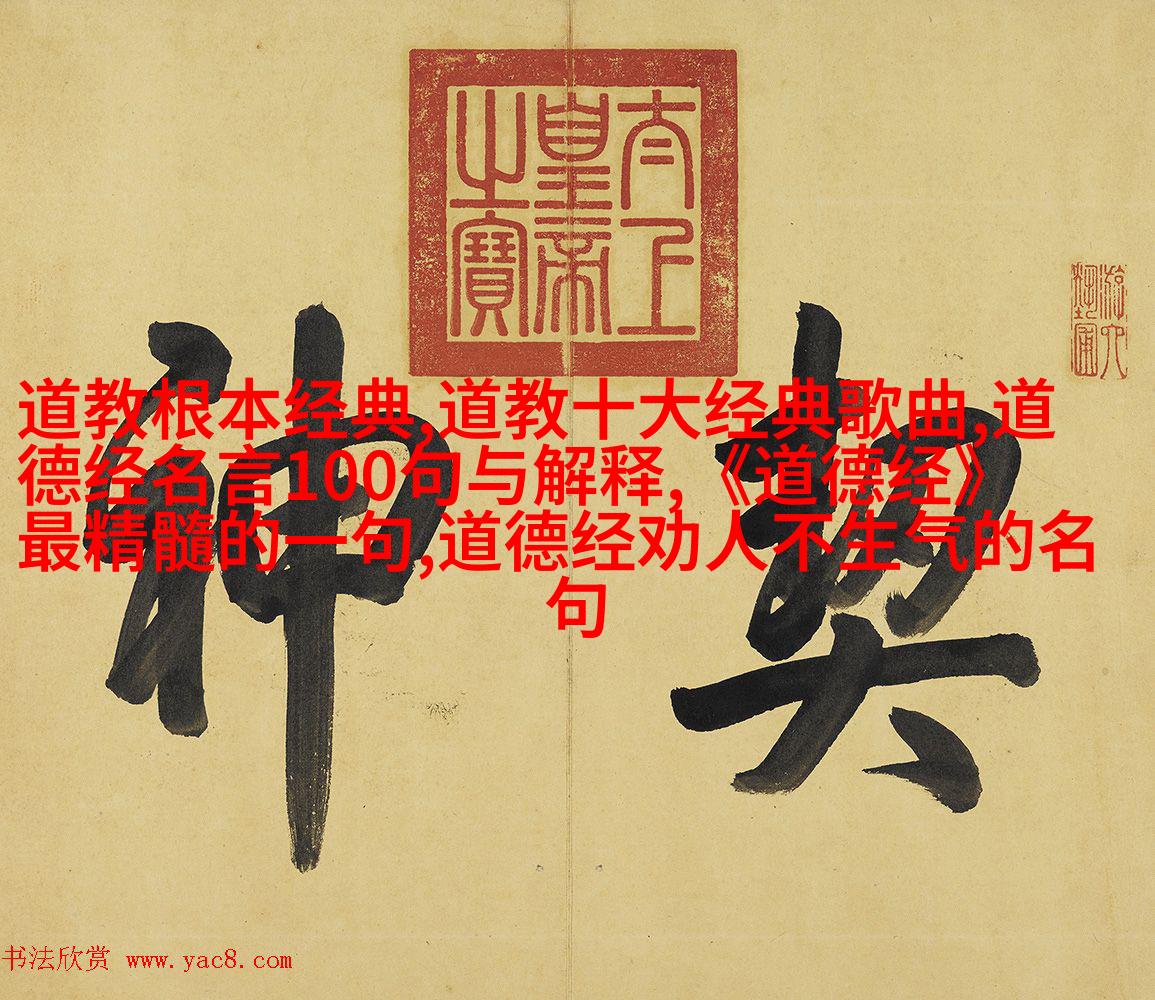 太上
皇帝
之寶
游六
藝圃
契神
道教根本经典,道教十大经典歌曲,道
德经名言100句与解释,《道德经》
最精髓的一句,道德经劝人不生气的名
句
书法欣赏 www.yac8.com